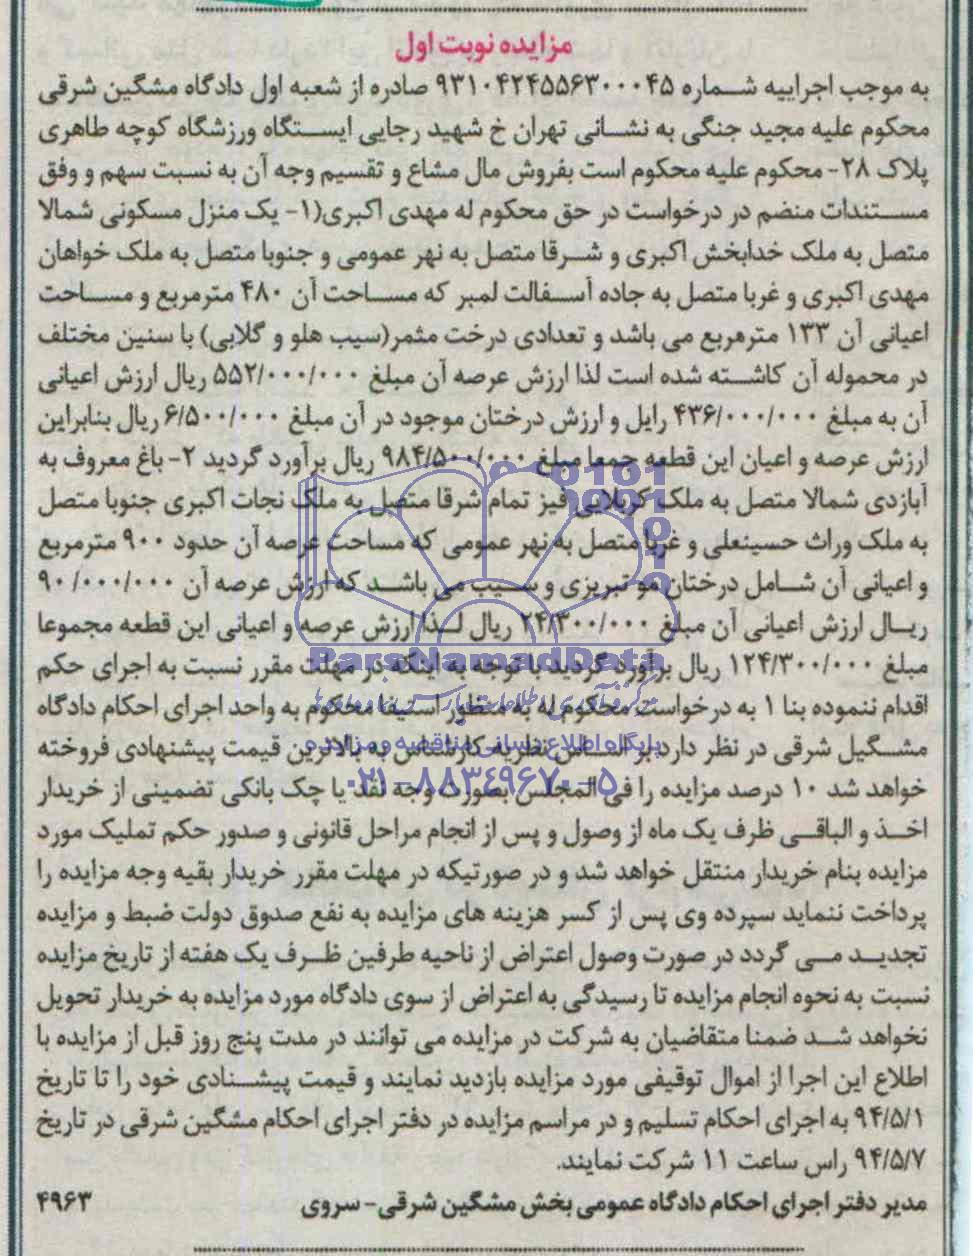 مزایده نوبت اول
به موجب اجراییه شماره ۹۳۱۰۴۲۴۵۵۶۳۰۰۰۴۵ صادره از شعبه اول دادگاه مشگین شرقی
محکوم علیه مجید جنگی به نشانی تهران خ شهید رجایی ایستگاه ورزشگاه کوچه طاهری
پلاک ۲۸- محکوم علیه محکوم است بفروش مال مشاع و تقسیم وجه آن به نسبت سهم و وفق
مستندات منضم در درخواست در حق محکوم له مهدی اکبری(۱- یک منزل مسکونی شمالا
متصل به ملک خدابخش اکبری و شرقا متصل به نهر عمومی و جنوبا متصل به ملک خواهان
مهدی اکبری و غربا متصل به جاده آسفالت لمبر که مساحت آن ۴۸۰ مترمربع و مساحت
اعیانی آن ۱۳۳ مترمربع می باشد و تعدادی درخت مثمر(سیب هلو و گلابی) با سنین مختلف
در محموله آن کاشته شده است لذا ارزش عرصه آن مبلغ ۵۵۲/۰۰۰/۰۰۰ ریال ارزش اعیانی
آن به مبلغ ۴۳۶/۰۰۰/۰۰۰ رایل و ارزش درختان موجود در آن مبلغ ۶/۵۰۰/۰۰۰ ریال بنابراین
ارزش عرصه و اعیان این قطعه جمعا مبلغ ۹۸۴/۵۰۰/۰۰۰ ریال برآورد گردید ۲- باغ معروف به
آبازدی شمالا متصل به ملک کربلایی فیز تمام شرقا متصل به ملک نجات اکبری جنوبا متصل
به ملک وراث حسینعلی و غربا متصل به نهر عمومی که مساحت عرصه آن حدود ۹۰۰ مترمربع
و اعیانی آن شامل درختان مو تبریزی و سیب می باشد که ارزش عرصه آن ۹۰/۰۰۰/۰۰۰
ریال ارزش اعیانی آن مبلغ ۲۴/۳۰۰/۰۰۰ ریال لذا ارزش عرصه و اعیانی این قطعه مجموعا
مبلغ ۱۲۴/۳۰۰/۰۰۰ ریال برآورد گردید با توجه به اینکه در مهلت مقرر نسبت به اجرای حکم
اقدام ننموده بنا ۱ به درخواست محکوم له به منظور استیفا محکوم به واحد اجرای احکام دادگاه
مشگیل شرقی در نظر دارد بر اساس نظریه کارشناس به بالاترین قیمت پیشنهادی فروخته
خواهد شد ۱۰ درصد مزایده را فی المجلس بصورت وجه نقد یا چک بانکی تضمینی از خریدار
اخذ و الباقی ظرف یک ماه از وصول و پس از انجام مراحل قانونی و صدور حکم تملیک مورد
مزایده بنام خریدار منتقل خواهد شد و در صورتیکه در مهلت مقرر خریدار بقیه وجه مزایده را
پرداخت ننماید سپرده وی پس از کسر هزینه های مزایده به نفع صدوق دولت ضبط و مزایده
تجدید می گردد در صورت وصول اعتراض از ناحیه طرفین ظرف یک هفته از تاریخ مزایده
نسبت به نحوه انجام مزایده تا رسیدگی به اعتراض از سوی دادگاه مورد مزایده به خریدار تحویل
نخواهد شد ضمنا متقاضیان به شرکت در مزایده می توانند در مدت پنج روز قبل از مزایده با
اطلاع این اجرا از اموال توقیفی مورد مزایده بازدید نمایند و قیمت پیشنادی خود را تا تاریخ
۹۴/۵/۱ به اجرای احکام تسلیم و در مراسم مزایده در دفتر اجرای احکام مشگین شرقی در تاریخ
۹۴/۵/۷ راس ساعت ۱۱ شرکت نمایند.
مدیر دفتر اجرای احکام دادگاه عمومی بخش مشگین شرقی- سروی ۴۹۶۳
ParsNamadData
پایگاه اطلاع رسانی مناقصه و مزایده
۰۲۱-۸۸۳۴۹۶۷۰-۵